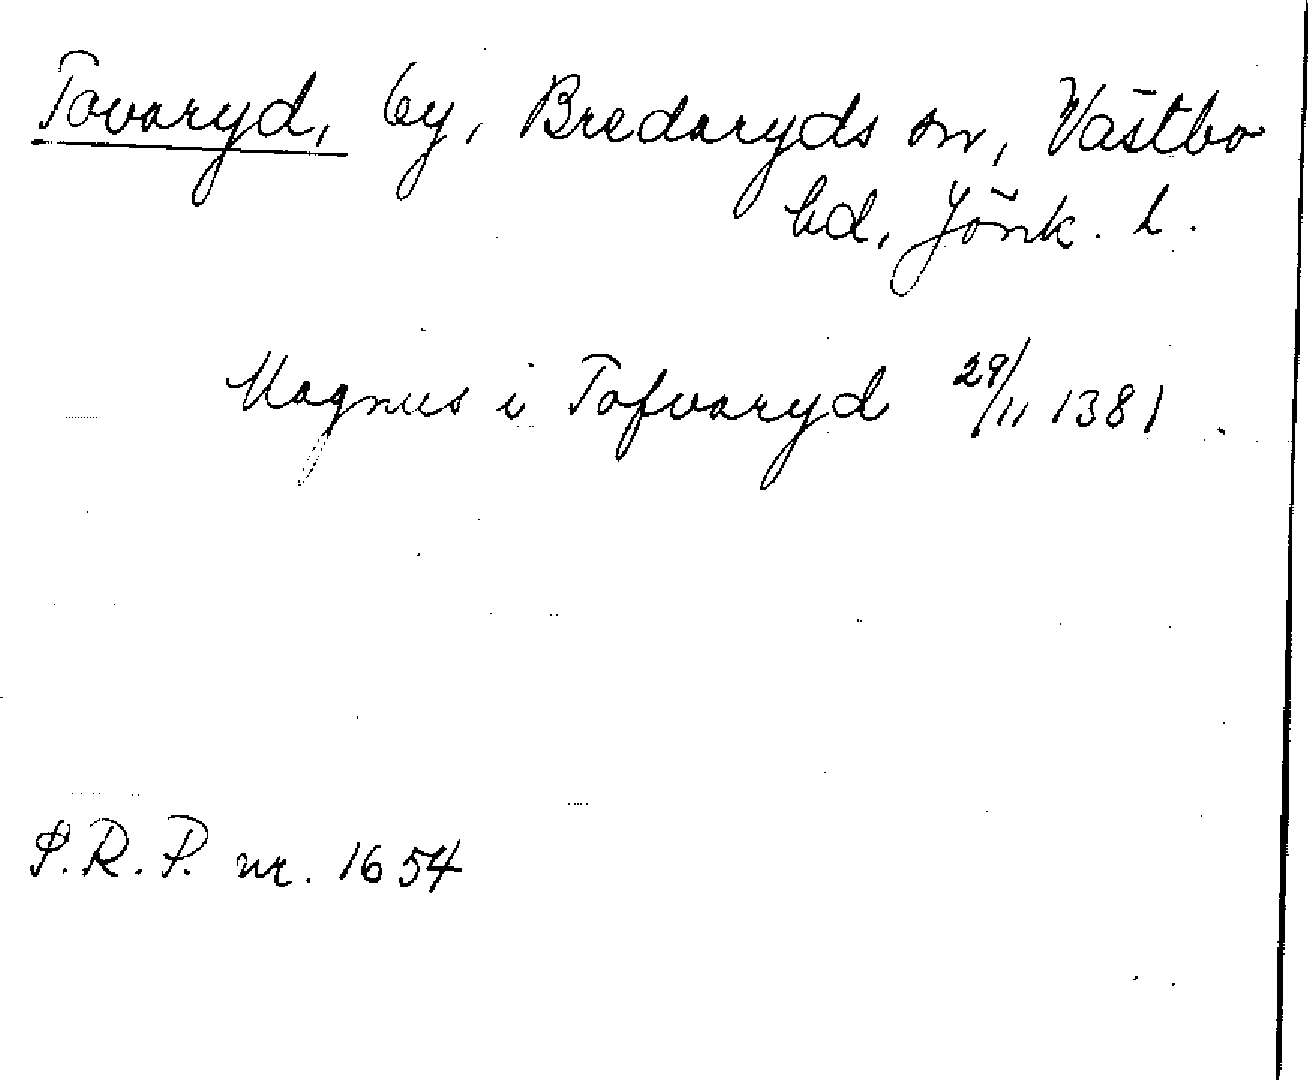 Tovaryd, by, Bredaryds sn, Västbo
hd, Jönk. l.
Magnus i Tofvaryd 29/11 1381
S.R.P. nr. 1654